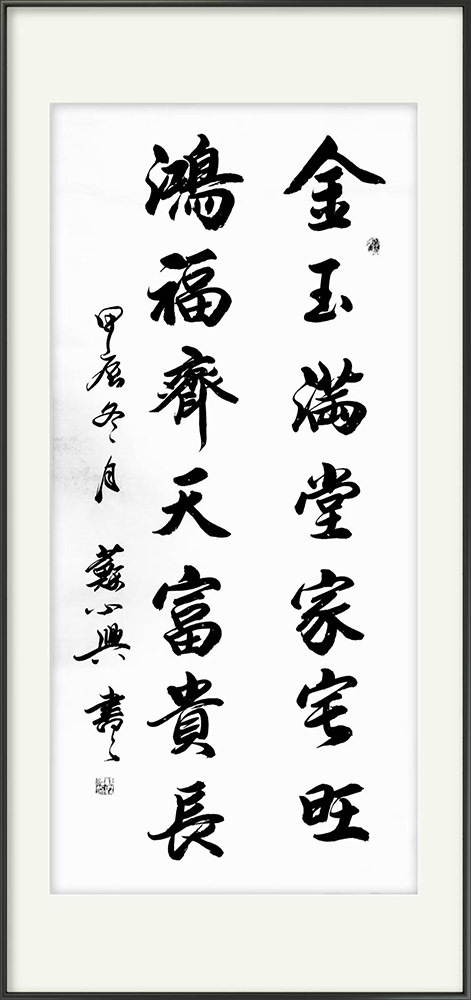 金玉满堂家宅旺
鴻福齊天富貴長
甲辰冬月 蘇小興書